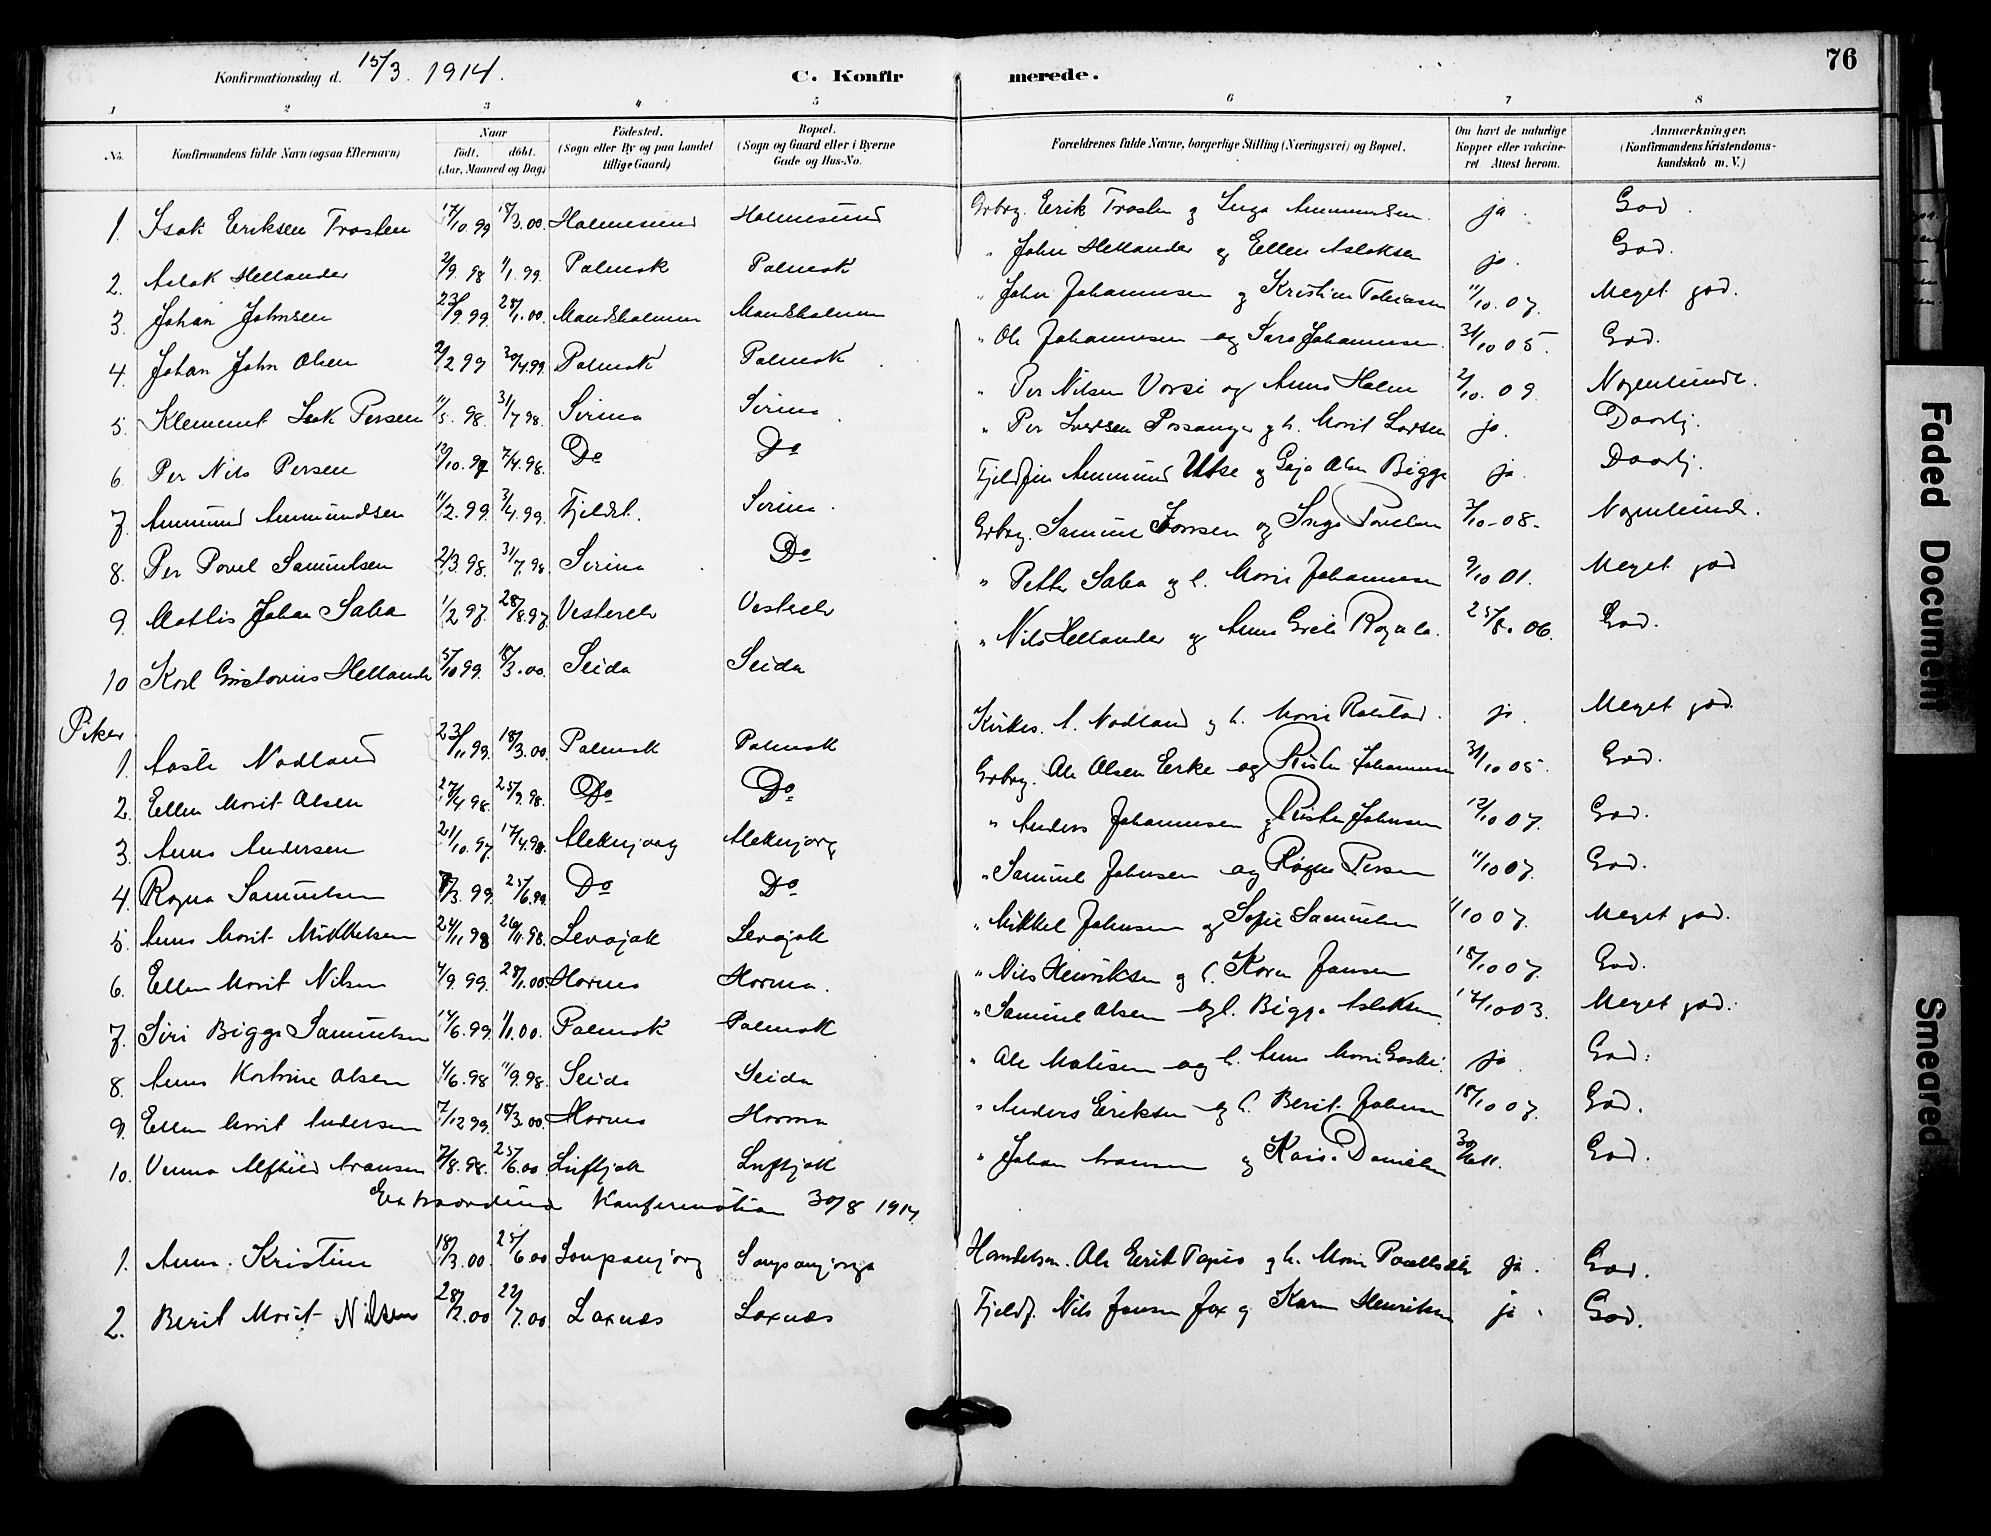 76
Konfirmationsdag d. 15/3. 1914.
C. Konfirmerede.
1 2 3 4 5 6 7 8
No. Konfirmandens fulde Navn (ogsaa Efternavn) Naar födt. döbt. (Aar, Maaned og Dag) Födested. (Sogn eller By og paa Landet tillige Gaard) Bopæl. (Sogn og Gaard eller i Byerne Gade og Hus-No. Forældrenes fulde Navne, borgerlige Stilling (Næringsvei) og Bopæl. Om havt de naturlige Kopper eller vakcineret Attest herom. Anmærkninger. (Konfirmandens Kristendomskundskab m. V.)
1. Isak Eriksen Trosten 17/10.99 18/3.00. Holmesund Holmesund Grbrg. Erik Trosten og Inga Ammundsen. ja. God.
2. Aslak Hellander 2/9.98 1/1.99. Polmak Polmak " John Hellander og Ellen Aslaksen ja. God.
3. Johan Johnsen 23/9 99 28/1.00. Mandsholmen Mandsholmen " John Johannesen og Kristine Tobiasen 11/10.07. Meget god.
4. Johan John Olsen 2/2 99 30/4.99. Polmak Polmak " Ole Johannesen og Sara Johannesen. 31/10 05. God.
5. Klemmet Isak Persen 11/5.98. 31/7 98. Sirma Sirma. " Per Nilsen Vorsi og Anna Holm 2/10.09 Nogenlunde.
6. Per Nils Persen 12/10.97 7/4.98. Do Do " Per Iversen Possanger og h. Marit Larsen ja. Daarlig.
7. Ammund Ammundsen 11/2.99. 3/4.99. Fjeldet. Sirma. Fjeldfin Ammund Utse og Gaja Olsen Bigga ja. Daarlig.
8. Per Povel Samuelsen 2/3.98. 31/7.98. Sirma Do Grbrg. Samuel Jonsen og Inga Povelsen 3/10-08. Nogenlunde.
9. Mathis Johan Saba 1/2 97. 28/8.97. Vesterelv Vesterelv " Petter Saba og h. Marie Johannesen 9/10 01. Meget god
10 Karl Gustavus Hellander 5/10 99. 18/3.00. Seida Seida " Nils Hellander og Anna Grete 25/8.06. God.
Piker
1. Aaste Nodland 23/11 99. 18/3.00. Polmak Polmak Kirkes. A. Nodland og h. Marie Rolstad. ja. Meget god.
2. Ellen Marit Olsen 27/4 98. 25/9.98. Do Do Grbrg. Ole Olsen Erke og Risten Johannesen 31/10 05. God.
3. Anna Andersen 21/10.97. 17/4.98. Aleknjarg Aleknjarg " Anders Johannesen og Risten Johnsen 12/10 07. God.
4. Ragna Samuelsen 8/3.99. 25/6.99. Do Do " Samuel Johnsen og Ragna Persen 11/10 07. God.
5. Anna Marit Mikkelsen 24/11.98 26/11.98. Levajok Levajok " Mikkel Johnsen og Sofie Samuelsen 11/10 07. Meget god.
6. Ellen Marit Nilsen 4/9 99. 28/1.00. Horma Horma. " Nils Henriksen og h. Karen Jansen 18/10 07. God.
7. Siri Bigga Samuelsen 14/6.99. 1/1.00. Polmak Polmak " Samuel Olsen og h. Bigga Aslaksen. 14/10 03. Meget god.
8. Anna Katrine Olsen 4/6.98 11/9.98. Seida Seida " Ole Matisen og h. Anna Marie ja God.
9. Ellen Marit Andersen 7/12 99. 18/3.00. Horma Horma " Anders Eriksen og h. Berit Johnsen 18/10 07. God.
10. Venna Alfhild Aronsen 7/8.98. 25/6.00 Luftjok Luftjok " Johan Aronsen og Danielsen 30/6 11. God.
Extraordinær Konfirmation 30/8 1914.
1. Anna Kristine 18/3.00. 25/6.00 Soupanjarg Soupanjarga Handelsm. Ole Erik Tapio og h. Marie ja. God.
2. Berit Marit Nilsen 28/2.00 22/7.00 Laxnæs Laxnæs Fjeldf. Nils Jansen Jox og Karen Henriksen ja. God.
Faded Document
Smeared